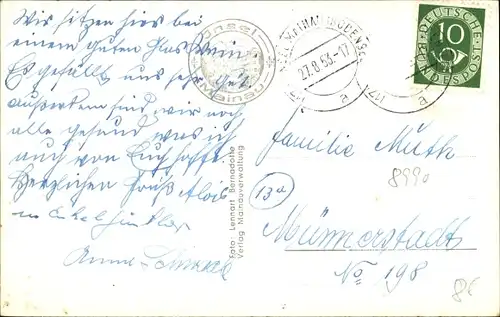 Wir sitzen hier bei
einem guten Glas Wein.
Es gefällt uns sehr gut,
ausserdem sind wir noch
alle gesund was ich
auch von Euch hoffe.
Herzlichen Gruß Alois
Anna
Insel
Mainau
INSEL MAINAU (BODENSEE)
27.8.53.-17
a
a
DEUTSCHE
BUNDESPOST
10
Foto: Lennart Bernadotte
Verlag Mainauverwaltung
Familie Muth
8990
13a
Münnerstadt
No 198
8€